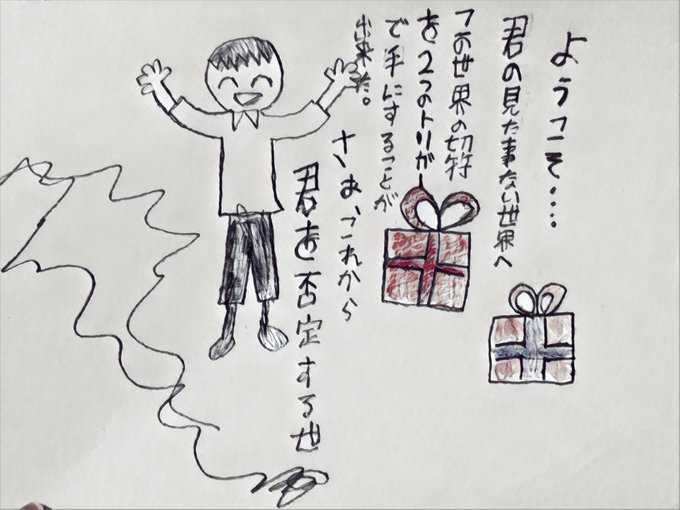 ようこそ....
君の見た事ない世界へ
この世界の切符
を2つのトリガー
で手にすることが
出来た。
さあ、これから
君を否定する世